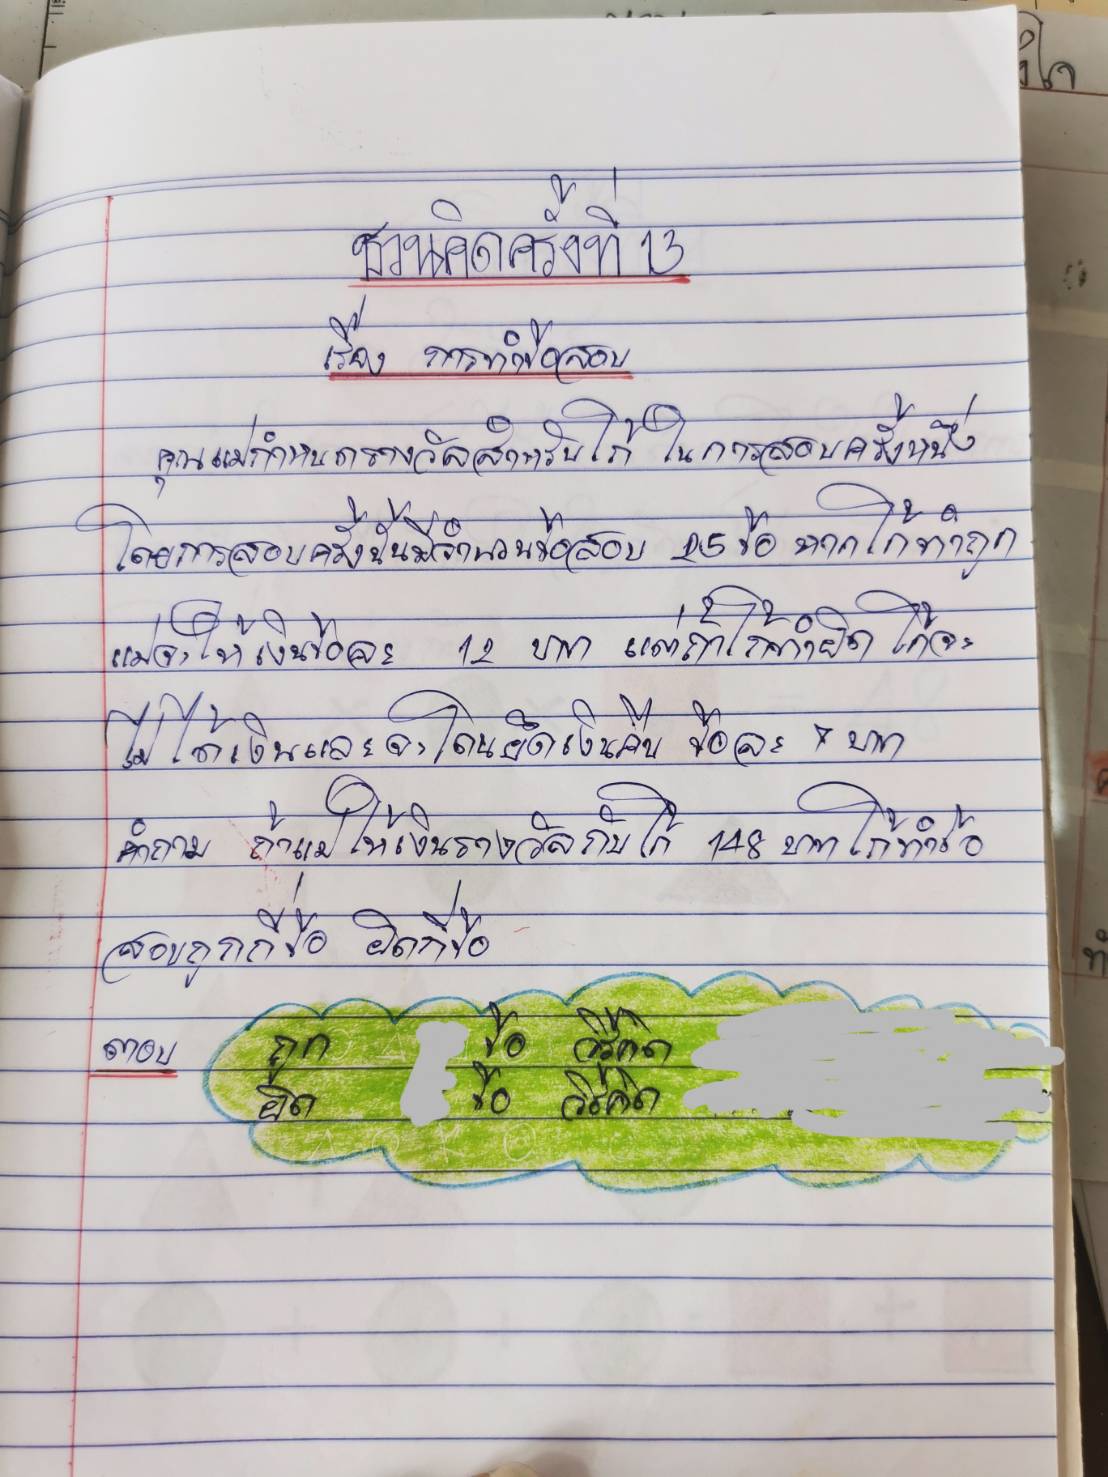 ชวนคิดครั้งที่ 13
เรื่อง การทำข้อสอบ
คุณแม่กำหนดรางวัลสำหรับโก้ ในการสอบครั้งหนึ่ง
โดยการสอบครั้งนั้นมีจำนวนข้อสอบ 25 ข้อ หากโก้ทำถูก
แม่จะให้เงินข้อละ 12 บาท แต่ถ้าโก้ทำผิด โก้จะ
ไม่ได้เงินและจะโดนยึดเงินคืน ข้อละ 7 บาท
คำถาม ถ้าแม่ให้เงินรางวัลกับโก้ 148 บาท โก้ทำข้อ
สอบถูกกี่ข้อ ผิดกี่ข้อ
ตอบ ถูก ข้อ วิธีคิด
ผิด ข้อ วิธีคิด